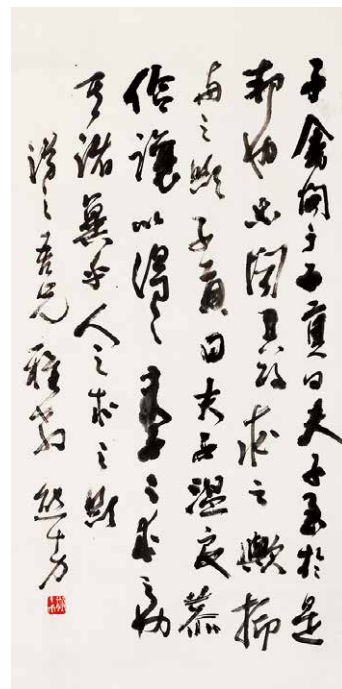 子禽問于子貢曰夫子至於是
邦也必聞其政求之歟抑
与之歟子貢曰夫子溫良恭
儉讓以得之夫子之求之也
其諸異乎人之求之歟
之吾兄雅教 熊十力